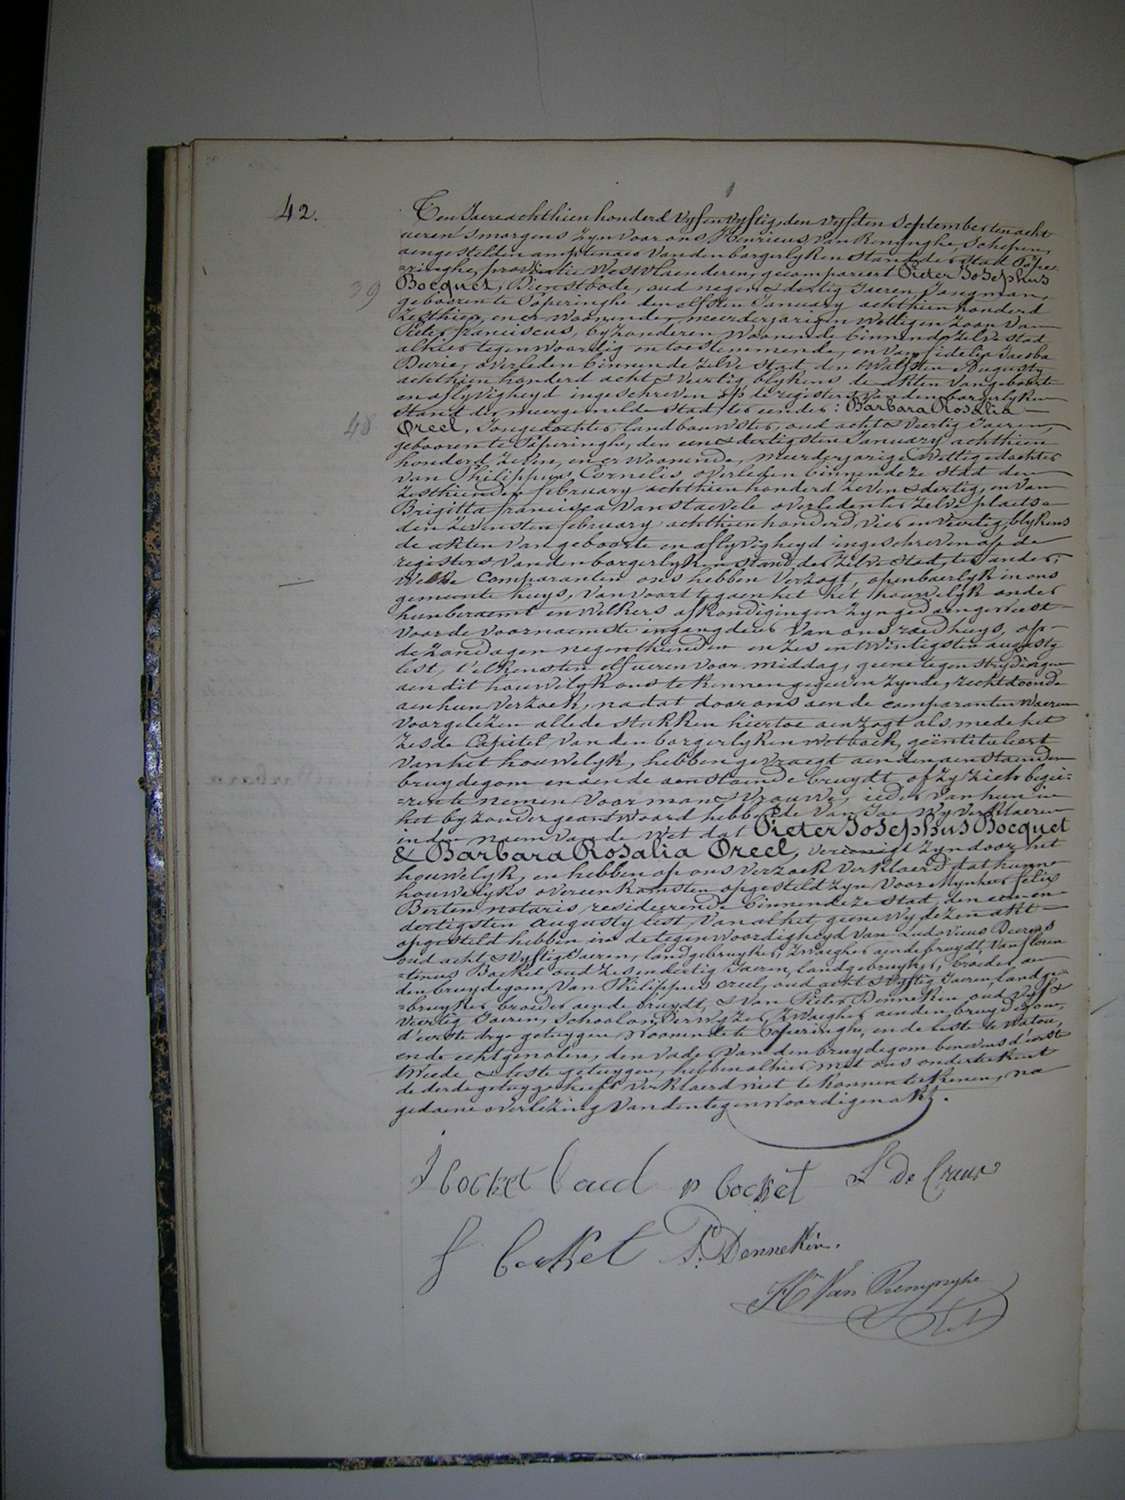 42.
Ten Jaere achthien honderd vyf en vyftig, den vyfden September ten acht
ueren 'smorgens zyn voor ons Henricus Van Renynghe, Schepen,
aengestelden amptenaer van den borgerlyken stand der stad Pope-
=ringhe, provintie Westvlaenderen, gecompareert Pieter Josephus
39
Bocquet, Dienstbode, oud negen & dertig Jaeren, Jongman,
geboren te Poperinghe den elfsten January achthien honderd
zesthien, en er woonende, meerderjarigen wettigen zoon van
Pieter franciscus, byzonderen, woonende binnen de zelve stad,
alhier tegenwoordig en toestemmende, en van fidelia Jacoba
Durie, overleden binnen de zelve stad, den twalfsten Augusty
achthien honderd acht & veertig blykens de akten van geboorte
en aflyvigheyd ingeschreven op de registers van den borgerlyken
stand der meergemelde stad, ter eender: Barbara Rosalia
48
Oreel, Jongedochter, landbouwster, oud acht & veertig Jaeren,
geboren te Poperinghe, den een & dertigsten January achthien
honderd zeven, en er woonende, meerderjarige wettige dochter
van Philippus Cornelis overleden binnen deze stad den
zesthienden february achthien honderd zeven & dertig, en van
Brigitta francisca Van Staevele overleden ter zelve plaetse
den zevensten february achthien honderd vier en veertig, blykens
de akten van geboorte en aflyvigheyd ingeschreven op de
registers van den borgerlyken stand der zelve stad, ter ander;
Welke comparanten ons hebben verzogt, openbaerlyk in ons
gemeente huys, van voort te gaen het het houwelyk onder
hun beraemt en welkers afkondigingen zyn gedaen geweest
voor de voornaemste ingangdeur van ons raedhuys, op
de zondagen negenthienden en zes en twintigsten augusty
lest, t'elkensten elf ueren voor middag, geene tegenstrydingen
aen dit houwelyk ons te kennen gegeven zynde, rechtdoende
aen hun verzoek, nadat door ons aen de comparanten waeren
voorgelezen alle de stukken hiertoe aenzogt als mede het
zesde Capitel van den borgerlyken wetboek, geïntituleert
van het houwelyk, hebben gevraegt aen den aenstaenden
bruydegom en aen de aenstaende bruydt of zy zich begee-
=ren te nemen voor man & vrouwe, ieder van hun in
het byzonder geantwoord hebbende van Jae Wy verklaeren
in den naem van de Wet dat Pieter Josephus Bocquet
& Barbara Rosalia Oreel, vereenigt zyn door het
houwelyk, en hebben op ons verzoek verklaerd dat hunne
houwelyks overeenkomsten opgesteld zyn voor Mynheer felix
Berten notaris, resideerende binnen deze stad, den een en
dertigsten augusty lest, van al het geene wy dezen akt
opgesteld hebben in de tegenwoordigheyd van Ludovicus
oud acht & vyftig Jaeren, landgebruyker, zwaegher aen de bruydt, van floren
=tinus Boeket oud zes en dertig Jaeren, landgebruyker, broeder aen
den bruydegom, van Philippus oreel, oud acht & vyftig Jaeren, landge-
=bruyker broeder aen de bruydt, & van Pieter Denneken oud vyf &
veertig Jaeren, Schoolonderwyzer, zwaegher aen den bruydegom,
d'eerste drye getuygen woonende te Poperinghe, en de leste te Watou,
en de echtgenoten, den vader van den bruydegom benevens d'eerste
tweede & leste getuygen, hebben alhier met ons onderteekent
de derde getuyge heeft verklaerd niet te konnen teekenen, na
gedaene overlezing van den tegenwoordigen akt.
p bocket L de Cruw
bocket P. Dennekin.
Hri Van Renynghe